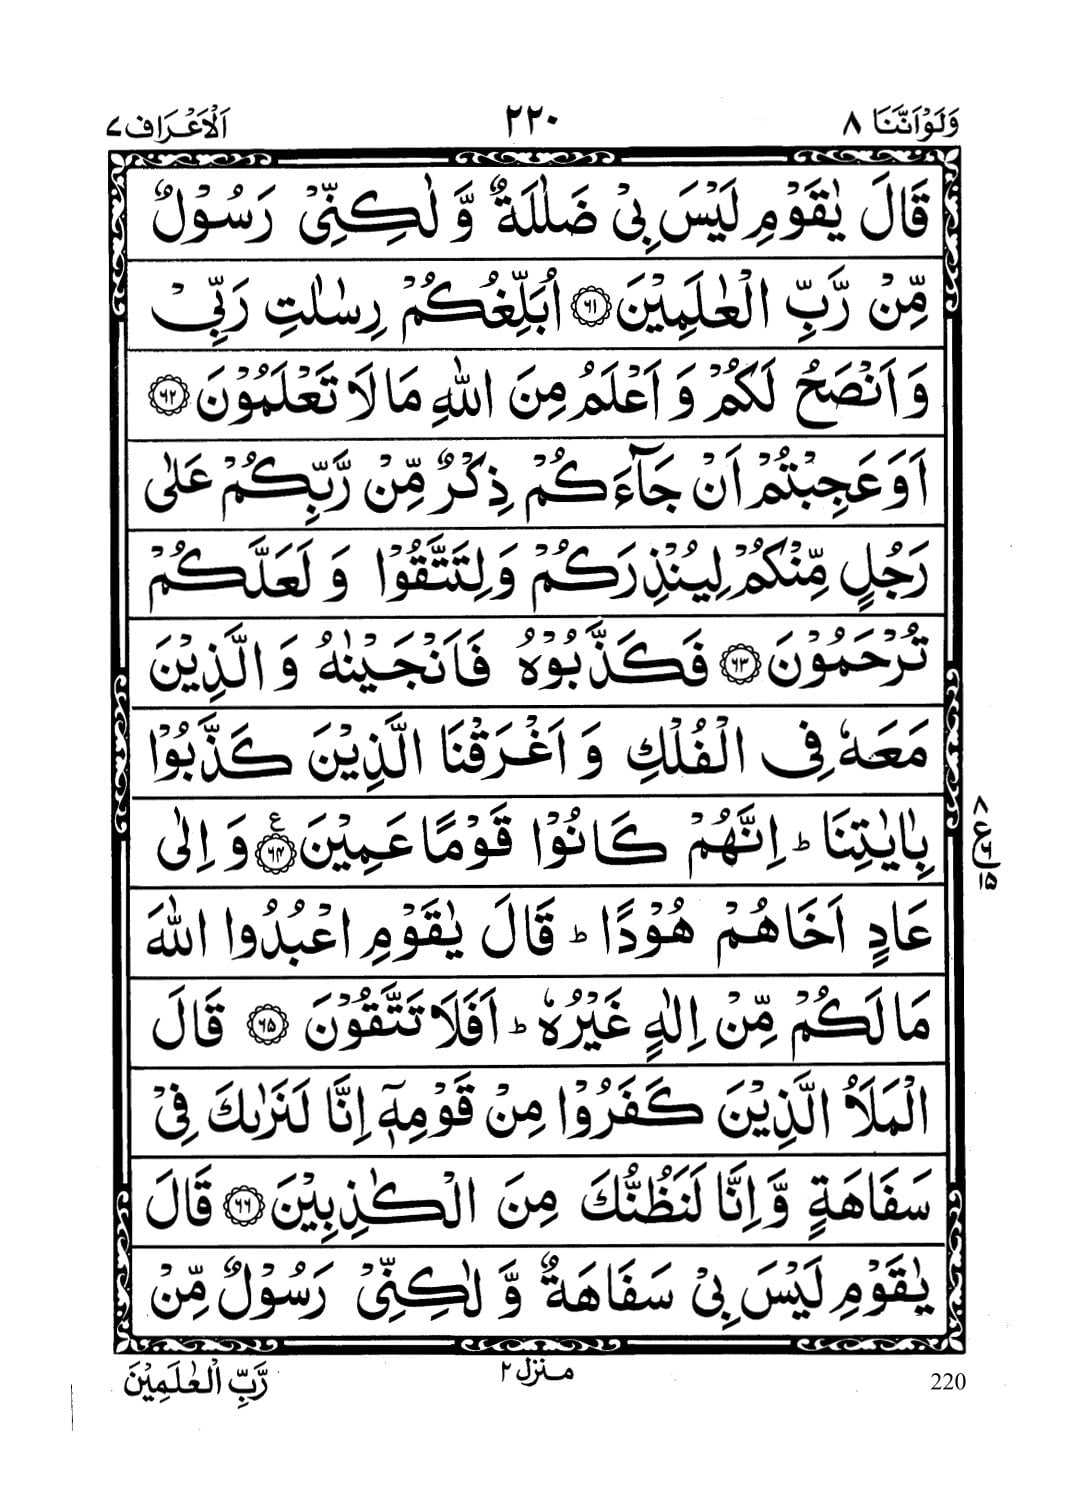 وَلَوْاَنَّنَا ٨ ٢٢٠ اَلْاَعْرَاف ٧
قَالَ يٰقَوْمِ لَيْسَ بِيْ ضَلٰلَةٌ وَّ لٰكِنِّيْ رَسُوْلٌ
مِّنْ رَّبِّ الْعٰلَمِيْنَ ۝٦١ اُبَلِّغُكُمْ رِسٰلٰتِ رَبِّيْ
وَ اَنْصَحُ لَكُمْ وَ اَعْلَمُ مِنَ اللّٰهِ مَا لَا تَعْلَمُوْنَ ۝٦٢
اَوَ عَجِبْتُمْ اَنْ جَآءَكُمْ ذِكْرٌ مِّنْ رَّبِّكُمْ عَلٰى
رَجُلٍ مِّنْكُمْ لِيُنْذِرَكُمْ وَ لِتَتَّقُوْا وَ لَعَلَّكُمْ
تُرْحَمُوْنَ ۝٦٣ فَكَذَّبُوْهُ فَاَنْجَيْنٰهُ وَ الَّذِيْنَ
مَعَهٗ فِي الْفُلْكِ وَ اَغْرَقْنَا الَّذِيْنَ كَذَّبُوْا
بِاٰيٰتِنَا ؕ اِنَّهُمْ كَانُوْا قَوْمًا عَمِيْنَ ۝٦٤ ع وَ اِلٰى
٨ ع ٦ ١٥
عَادٍ اَخَاهُمْ هُوْدًا ؕ قَالَ يٰقَوْمِ اعْبُدُوا اللّٰهَ
مَا لَكُمْ مِّنْ اِلٰهٍ غَيْرُهٗ ؕ اَفَلَا تَتَّقُوْنَ ۝٦٥ قَالَ
الْمَلَاُ الَّذِيْنَ كَفَرُوْا مِنْ قَوْمِهٖۤ اِنَّا لَنَرٰىكَ فِيْ
سَفَاهَةٍ وَّ اِنَّا لَنَظُنُّكَ مِنَ الْكٰذِبِيْنَ ۝٦٦ قَالَ
يٰقَوْمِ لَيْسَ بِيْ سَفَاهَةٌ وَّ لٰكِنِّيْ رَسُوْلٌ مِّنْ
220 منزل ٢ رَّبِّ الْعٰلَمِيْنَ